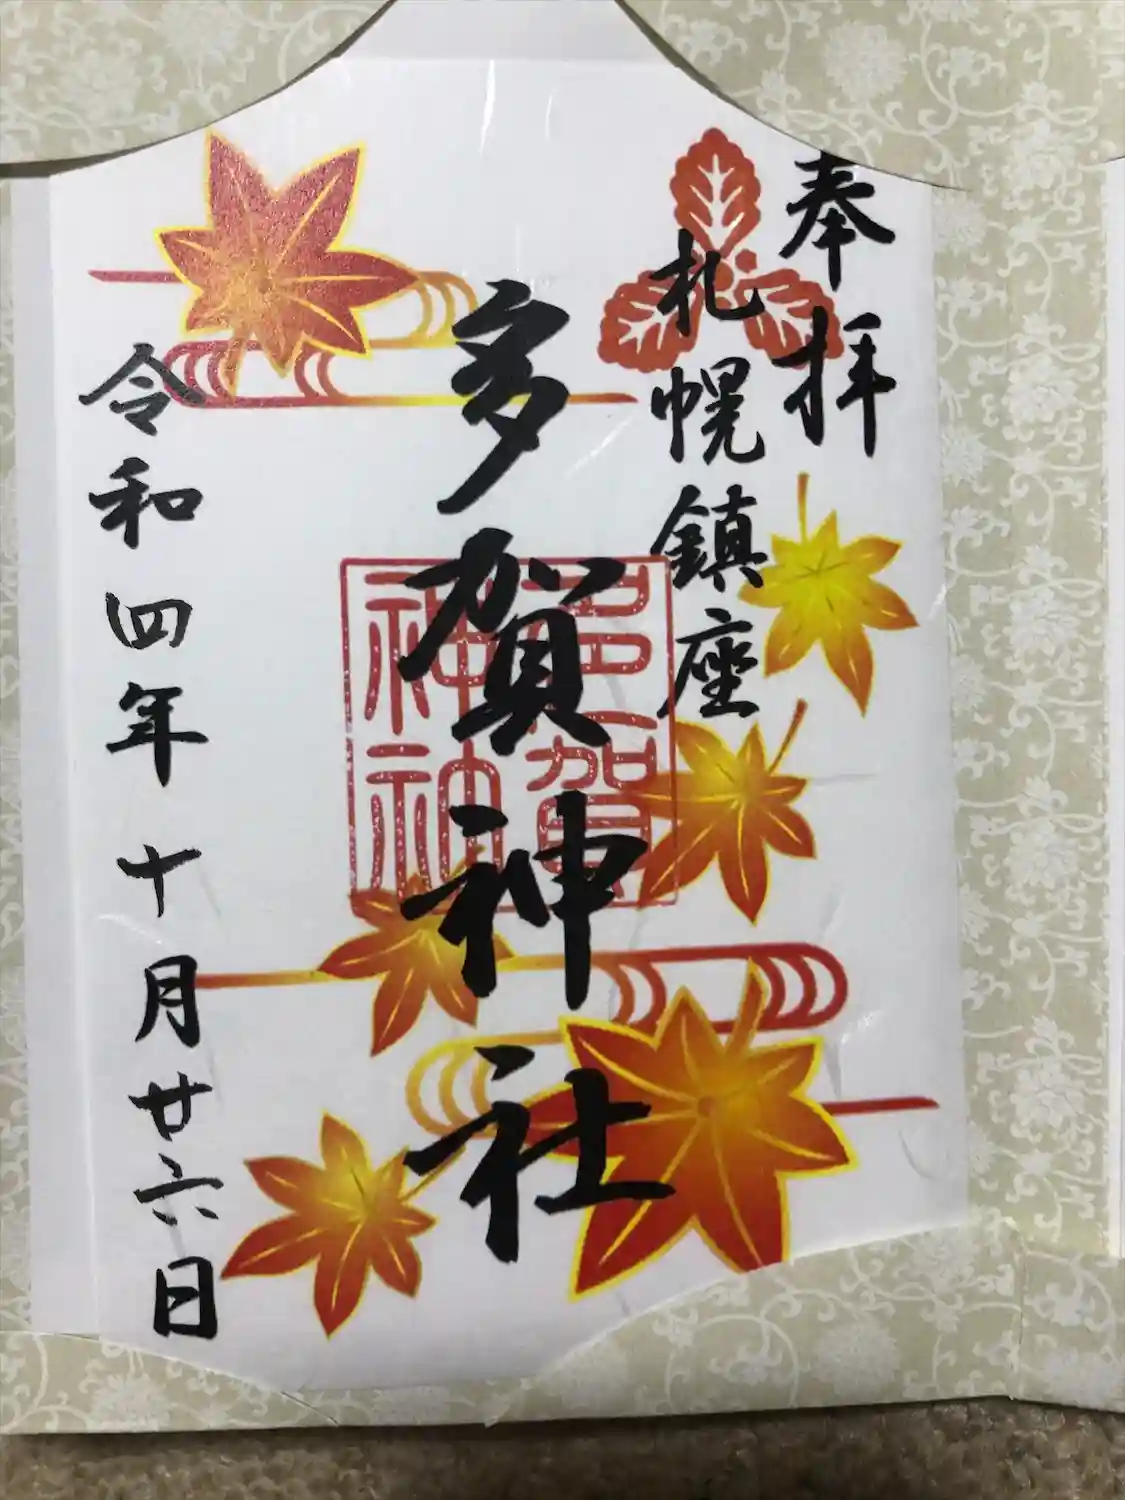 奉拝
札幌鎮座
多賀神社
令和四年十月廿六日